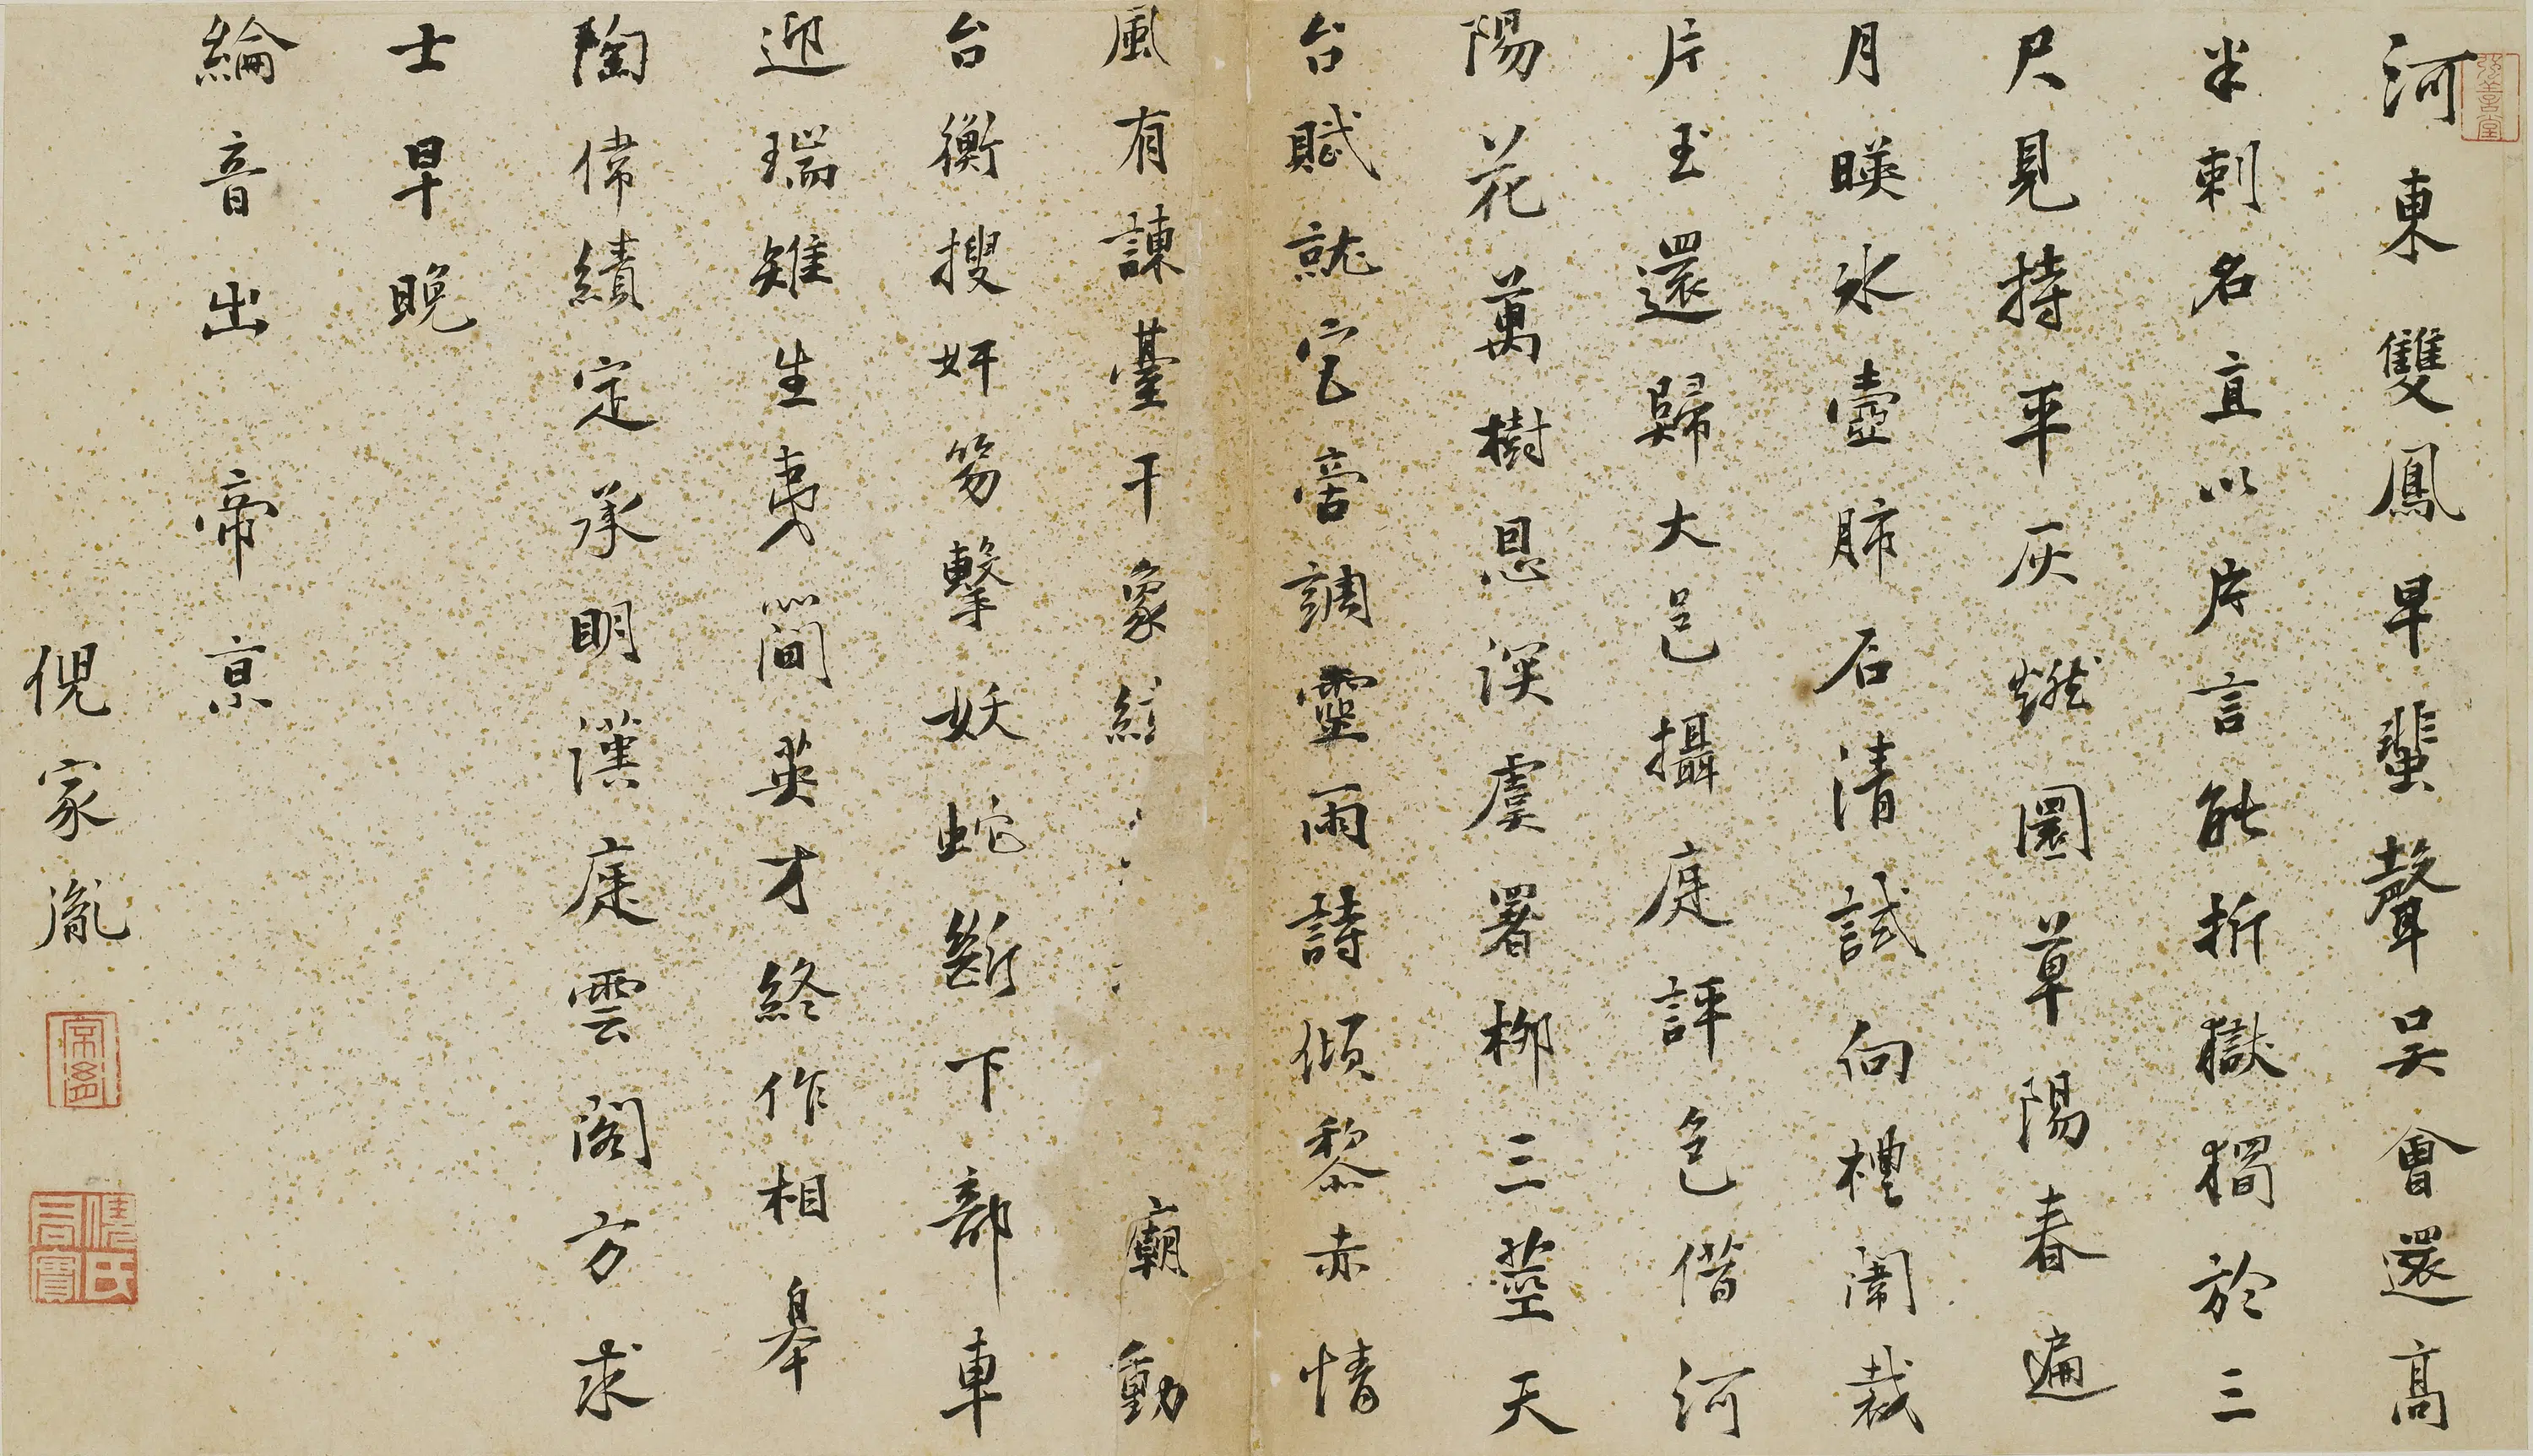 河東雙鳳早蜚聲吳會還高
半刺名直以片言能折獄獨於三
尺見持平灰燃圜草陽春遍
月暎冰壺肺石清試向禮闈裁
片玉還歸大邑攝庭評邑僭河
陽花萬樹恩深虞署柳三莖天
台賦就官帝調靈雨詩傾黎赤情
風有諫臺干象緯 廟動
台衡搜奸笏擊妖蛇斷下部車
迎瑞雉生夷簡英才終作相皋
陶偉績定承明漢庭雲閣方求
士早晚
綸音出帝京
倪家胤